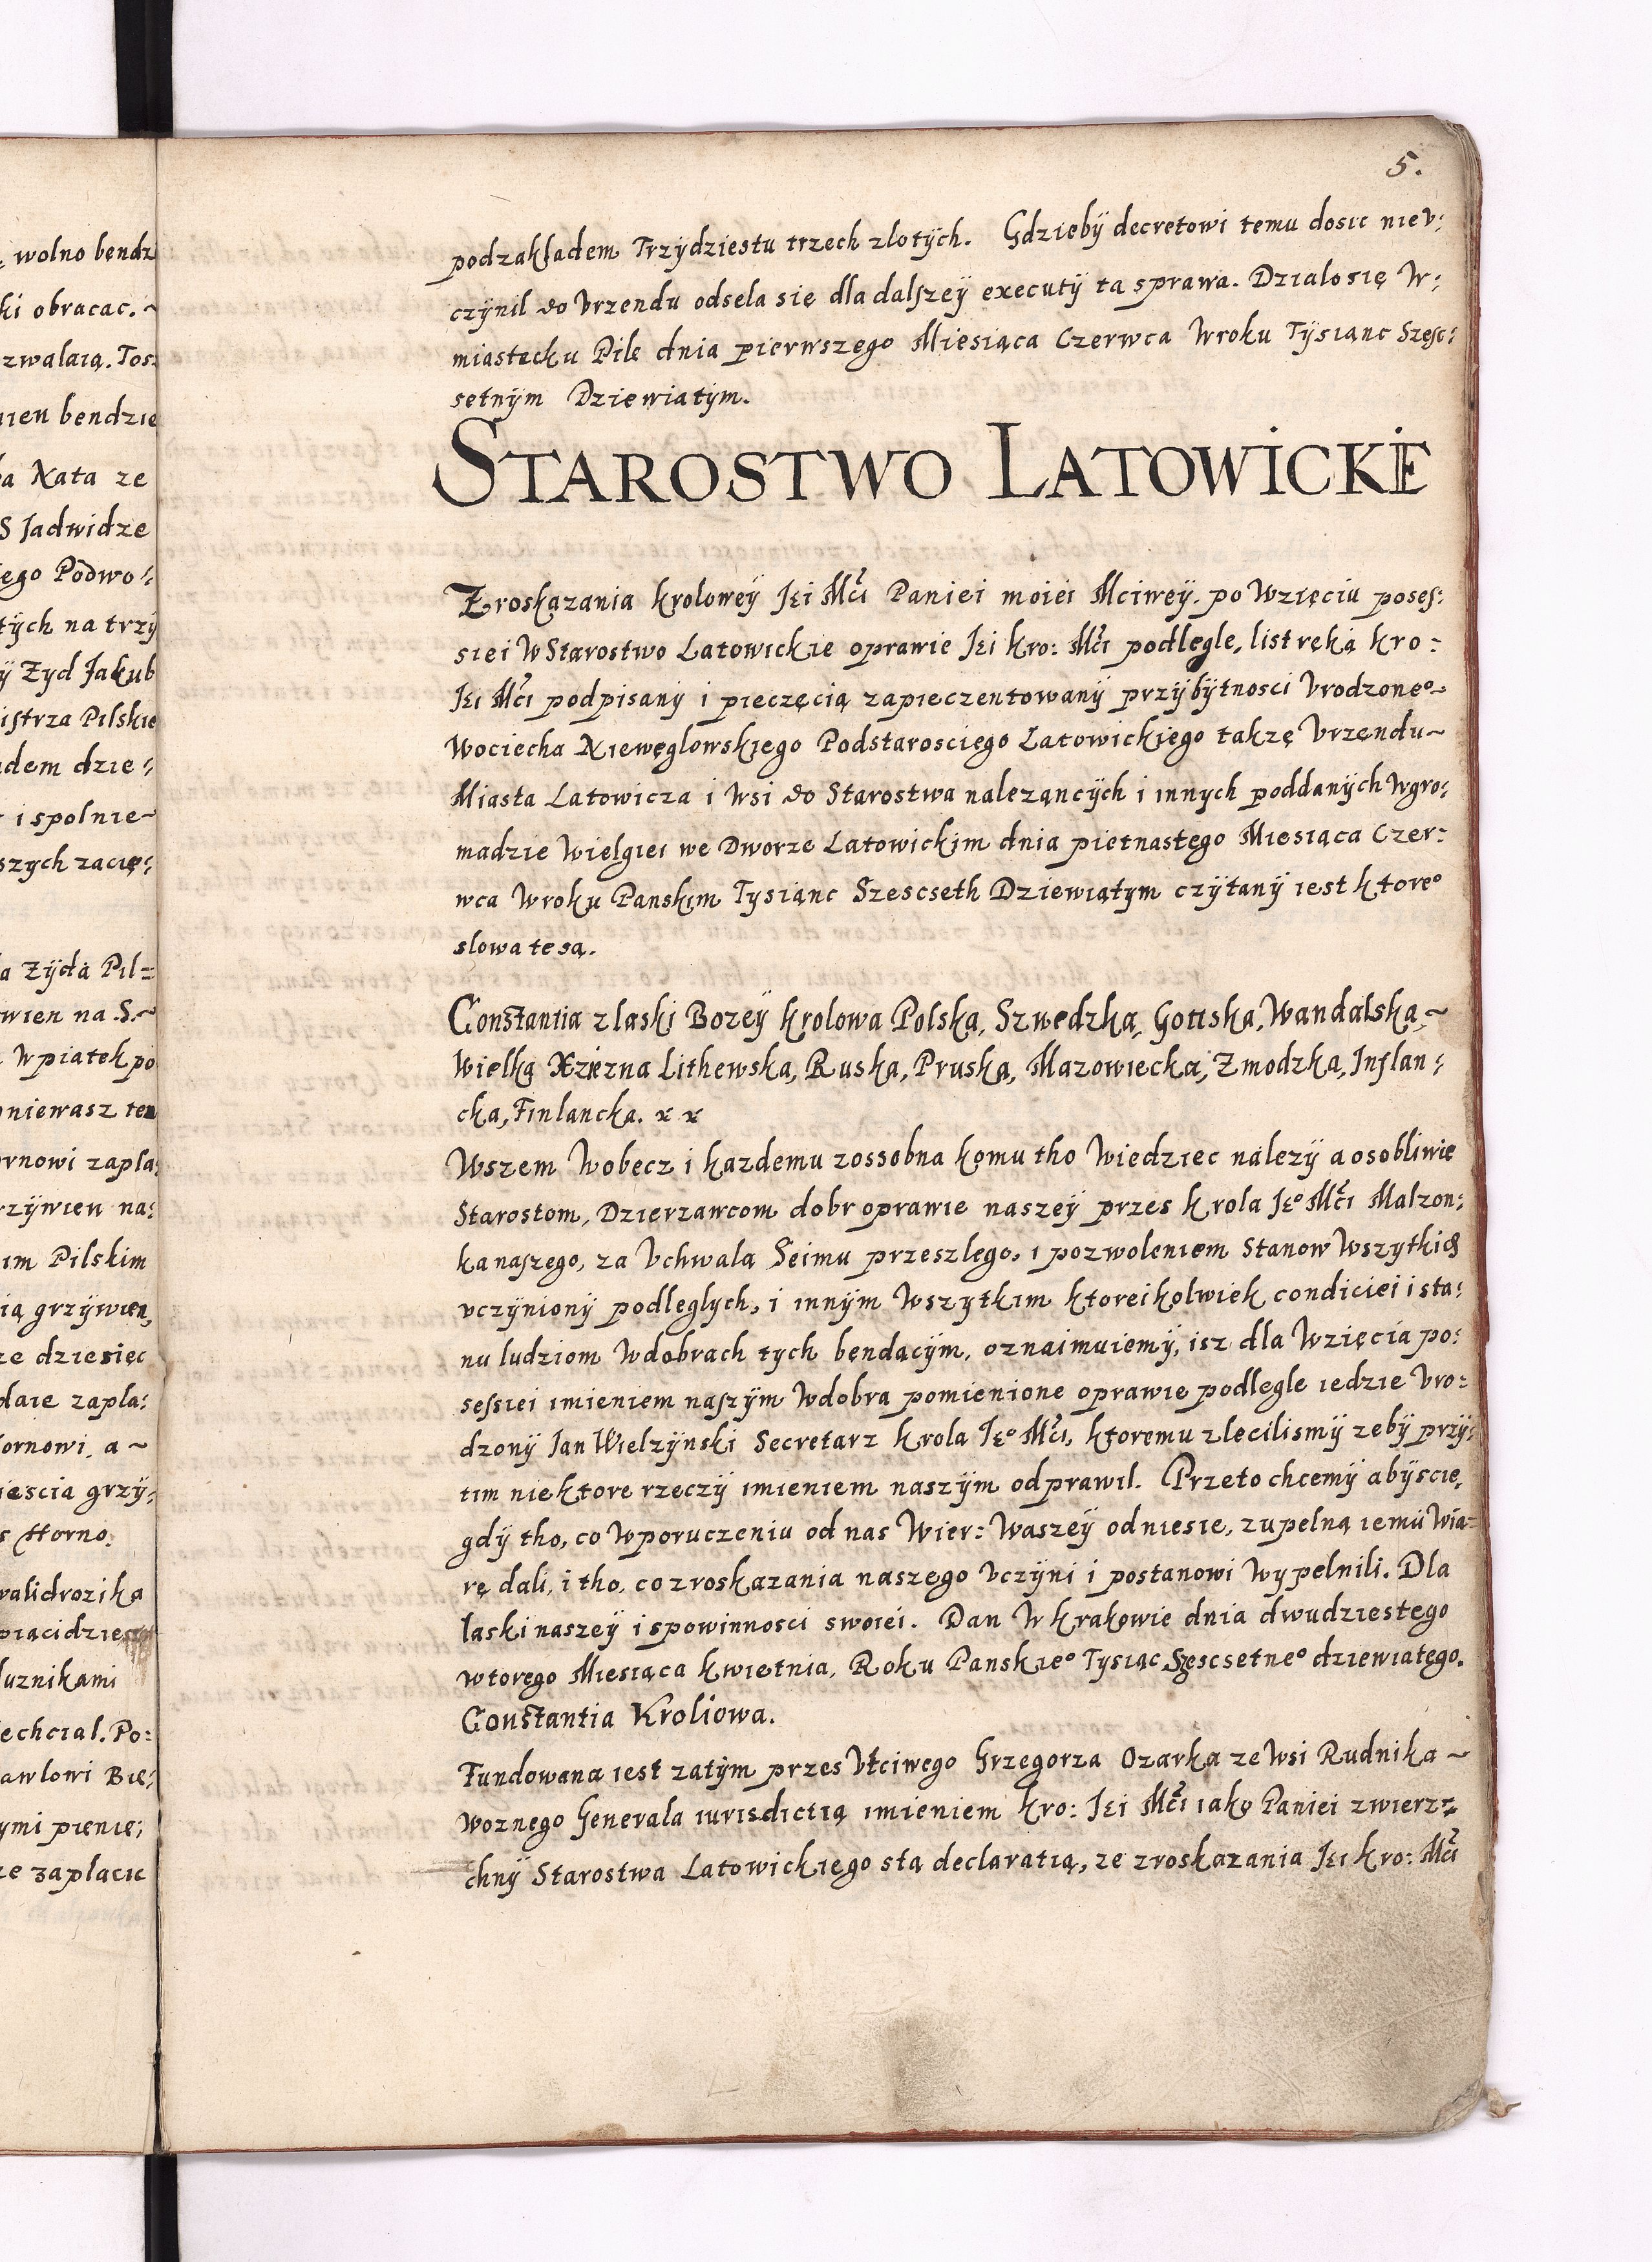 wolno bendz
ki obracac.~
zwalaią. Tos:
nien bendzie
ba Nata ze
S Jadwidze
ego Podwo:
tých na trzý
ý Zyd Jakub
istrza Pilskie
adem dzie:
i spolnie~
szych zacię:
a Zýda Pil=
wien na S.~
Wpiatek po
oniewasz ten
ornowi zapla:
rzýwien na:
im Pilskim
ią grzýwien,
ze dziesięc
daie zapla:
Hornowi, a~
iescia grzý:
s Horno:
walidrozika
piącidzies
luznikami
echcial. Po:
awlowi Bię:
ymi pienię:
ze zaplacic
5.
podzakładem Trzýdziestu trzech zlotých. Gdziebý decretowi temu dosic niev:
czýnil do Vrzendu odsela się dla dalszeý executý ta sprawa. Dzialo się W:
miastecku Pile dnia pierwszego Miesiąca Czerwca Wroku Týsianc Szesc:
setným Dziewiatým.
STAROSTWO LATOWICKIE
Zroskazania kroloweý Jei Mći Paniei moiei Mciweý. po Wzięciu poses:
siei W Starostwo Latowickie oprawie Jei Kro: Mći podlegle, list ręką kro:
Jei Mći podpisaný i pieczęcią zapieczentowaný przýbýtnosci Vrodzoneº~
Wociecha Niewęglowskiego Podstarosciego Latowickiego takzę Vrzendu~
Miasta Latowicza i Wsi do Starostwa nalezącých i innych poddaných Wgro:
madzie Wielgiei we Dworze Latowickim dnia pietnastego Miesiąca Czer:
wca Wroku Panskim Tysianc Szescseth Dziewiątým czýtaný iest ktoreº
slowa te są.
Constantia z laski Bozeý krolowa Polska, Szwedzka, Gottska, Wandalska,~
Wielkg Xziezna Lithewska, Ruska, Pruska, Mazowiecka, Zmodzka, Inflan:
cka, Finlancka. x x
Wszem Wobecz i kazdemu zossobna komu tho Wiedziec nalezý a osobliwie
Starostom, Dzierzawcom dobr oprawie naszeý przes Krola Jeº Mći Malzon:
ka naszego, za Vchwalą Seimu przeszlego, i pozwoleniem Stanow Wszytkich
vczýnioný podleglych, i inným Wszytkim ktoreikolwiek condiciei i sta:
nu ludziom Wdobrach tych bendącým, oznaimuiemý, isz dla Wzięcia po:
sessiei imieniem naszým Wdobra pomienione oprawie podlegle iedzie Vro:
dzoný Jan Wielzýnski Secretarz Krola Jeº Mći, ktoremu zlecilismý zebý przý:
tim niektore rzeczý imieniem naszým odprawil. Przeto chcemý abýscie,
gdý tho, co Wporuczeniu od nas Wier: Waszeý odniesie, zupelną iemu Wia:
rę dali, i tho, co zroskazania naszego Vczýni i postanowi Wypelnili. Dla
laski naszeý i spowinnosci swoiei. Dan W Krakowie dnia dwudziestego
wtorego Miesiąca Kwietnia, Roku Panskieº Tysiąc Szescsetneº dziewiatego.
Constantia Kroliowa.
Fundowana iest zatým przes Vtciwego Grzegorza Ozarka ze Wsi Rudnika~
Woznego Generala iurisdictią imieniem Kro: Jei Mći iako Paniei zwierz:
chný Starostwa Latowickiego stą declaratią, ze zroskazania Jei Kro: Mći